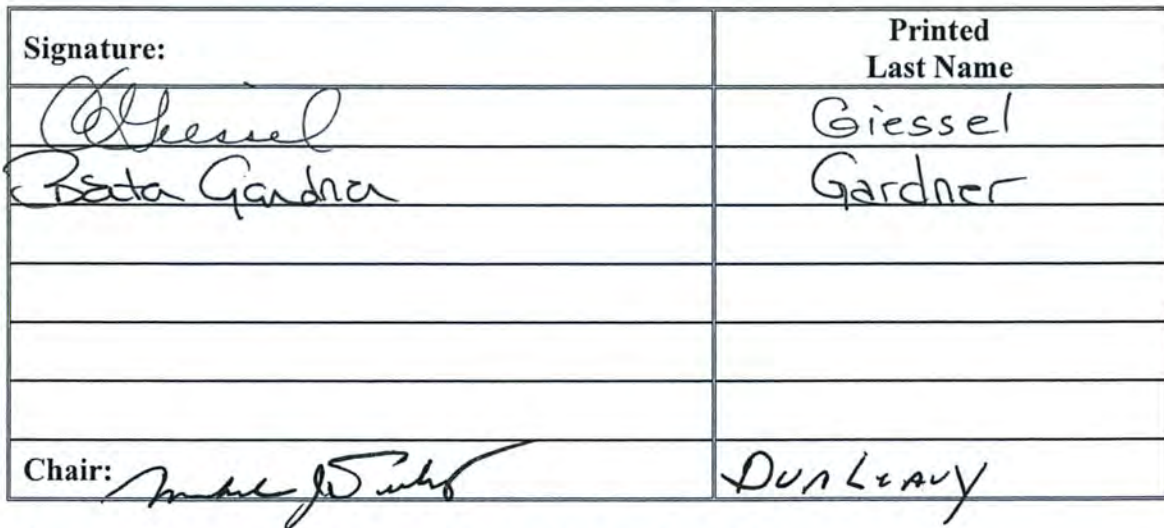 Signature: Printed
Last Name
Giessel Giessel
Gardner Gardner
Chair: DunLeavy